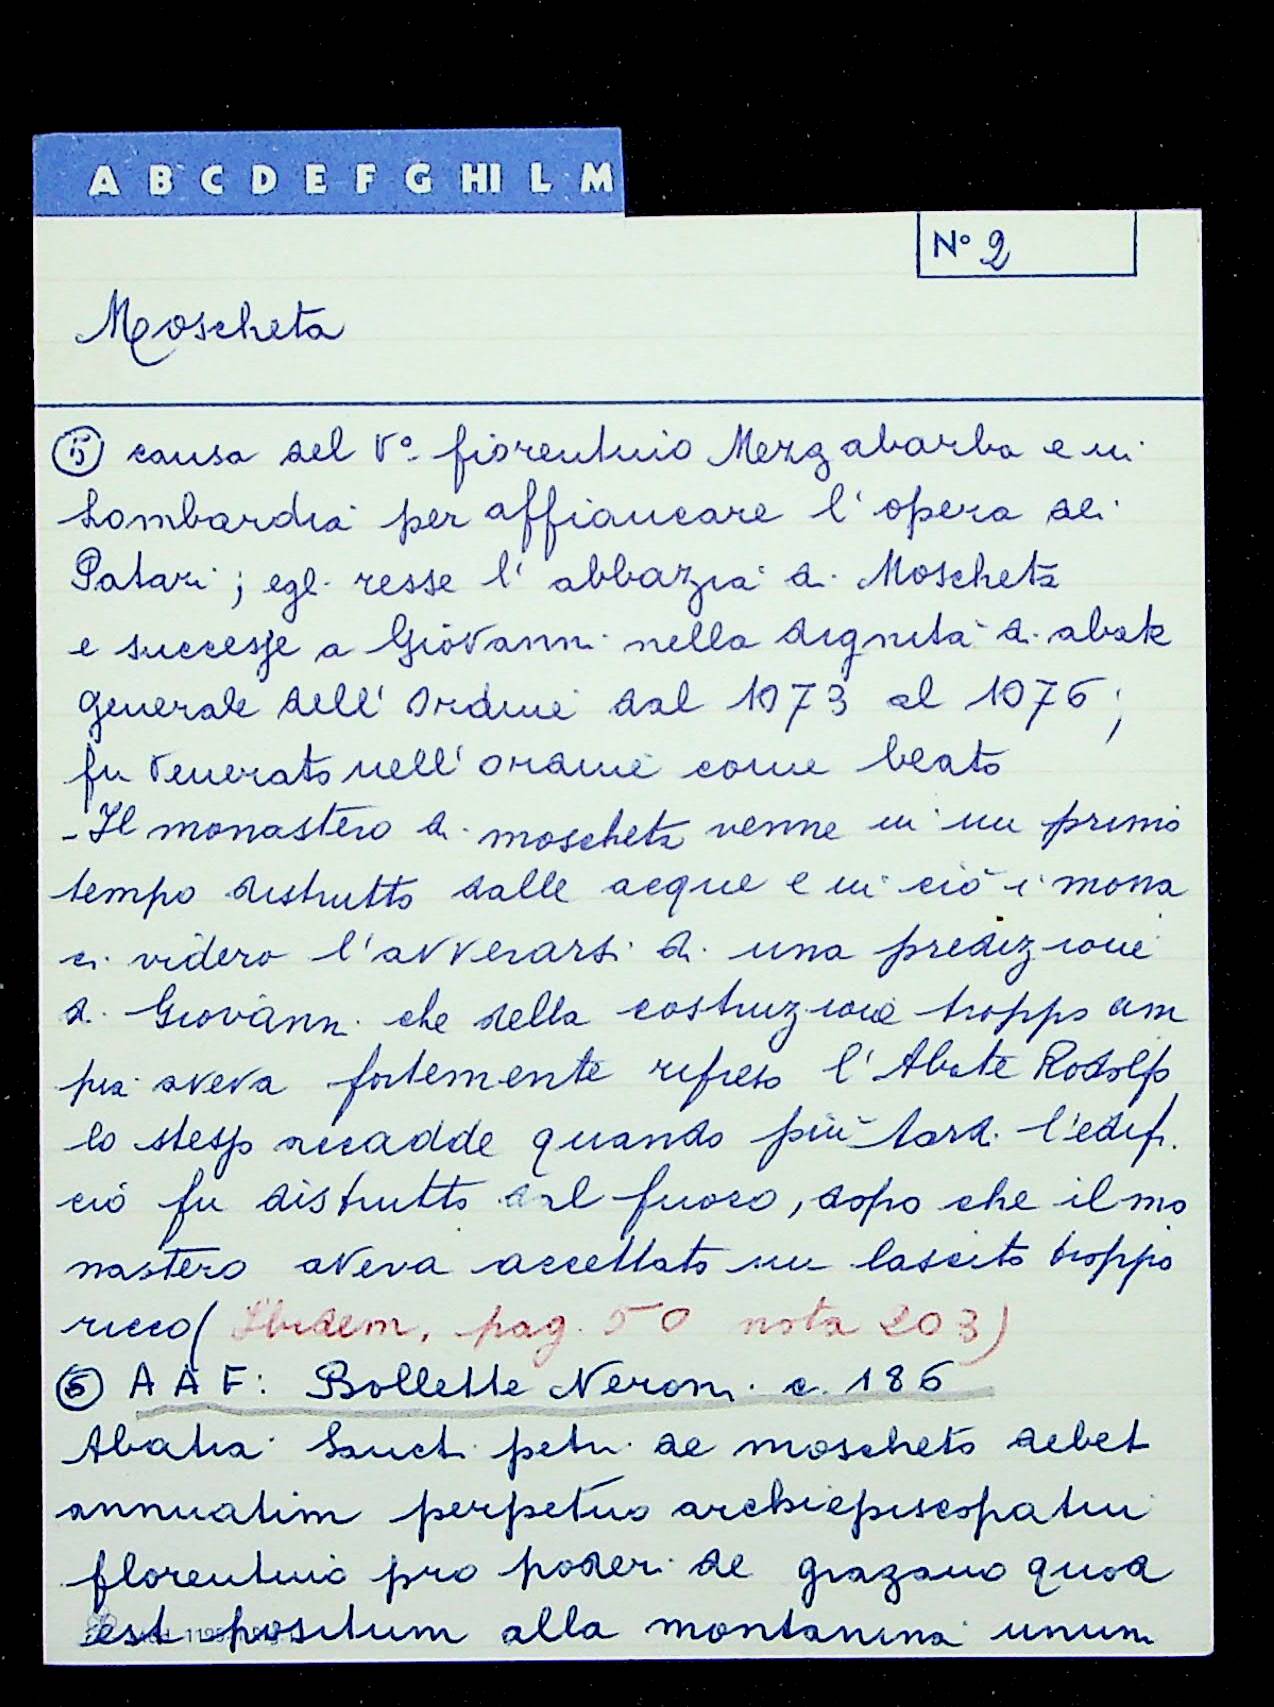 A B C D E F G HI L M
N° 2
Moscheta
⑤ causa del V° fiorentino Mezzabarba e in
Lombardia per affiancare l'opera dei
Patari; egli resse l'abbazia di Moscheta
e successe a Giovanni nella dignità di abate
generale dell'Ordine dal 1073 al 1076;
fu venerato nell'ordine come beato
- Il monastero di moscheta venne in un primo
tempo distrutto dalle acque e in ciò i mona
ci videro l'avverarsi di una predizione
di Giovanni che della costruzione troppo am
pia aveva fortemente ripreso l'Abate Rodolfo
lo stesso accadde quando più tardi l'edifi
cio fu distrutto dal fuoco, dopo che il mo
nastero aveva accettato un lascito troppo
ricco (Ibidem, pag. 50 nota 203)
⑥ A A F: Bollette Neroni c. 186
Abatia Sancti petri de moscheto debet
annuatim perpetuo archiepiscopatui
florentino pro poderi de grazano quod
est positum alla montanina unum